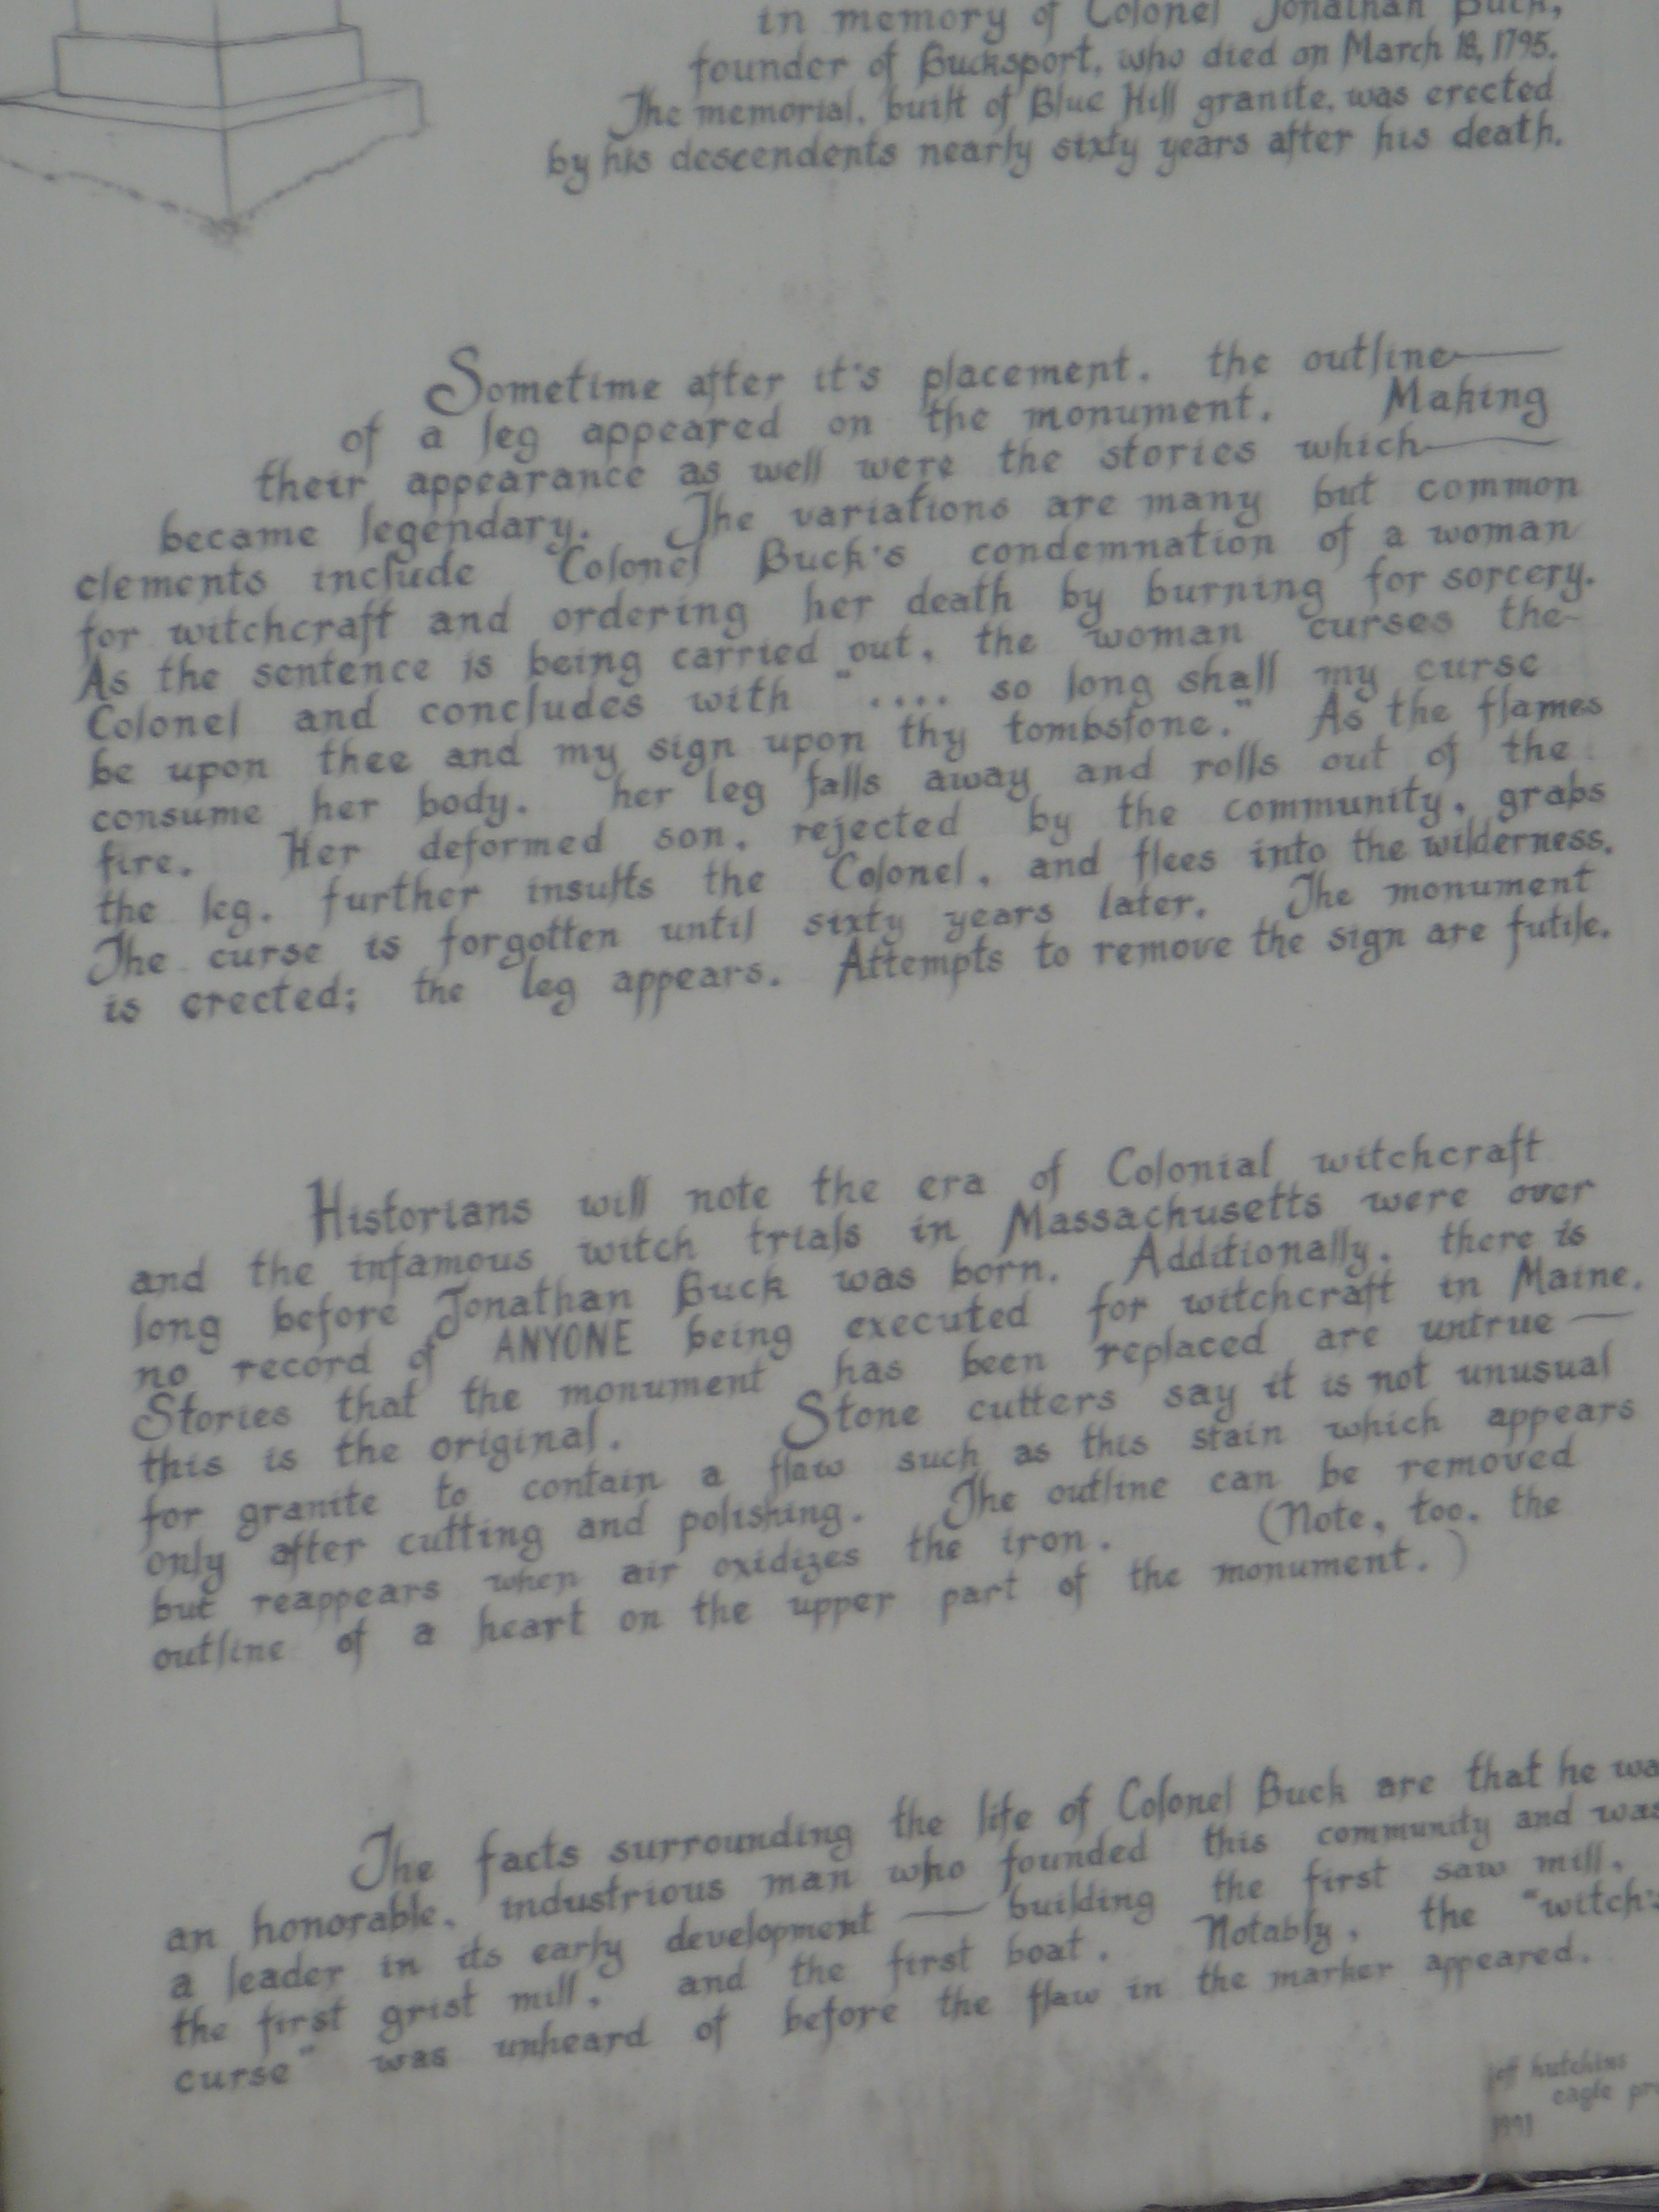 in memory of Colonel Jonathan Buck,
founder of Bucksport, who died on March 18, 1795.
The memorial, built of Blue Hill granite, was erected
by his descendents nearly sixty years after his death.
Sometime after it's placement, the outline
of a leg appeared on the monument. Making
their appearance as well were the stories which
became legendary. The variations are many but common
elements include Colonel Buck's condemnation of a woman
for witchcraft and ordering her death by burning for sorcery.
As the sentence is being carried out, the woman curses the
Colonel and concludes with ".... so long shall my curse
be upon thee and my sign upon thy tombstone." As the flames
consume her body, her leg falls away and rolls out of the
fire. Her deformed son, rejected by the community, grabs
the leg, further insults the Colonel, and flees into the wilderness.
The curse is forgotten until sixty years later. The monument
is erected; the leg appears. Attempts to remove the sign are futile.
Historians will note the era of Colonial witchcraft
and the infamous witch trials in Massachusetts were over
long before Jonathan Buck was born. Additionally, there is
no record of ANYONE being executed for witchcraft in Maine.
Stories that the monument has been replaced are untrue —
this is the original. Stone cutters say it is not unusual
for granite to contain a flaw such as this stain which appears
only after cutting and polishing. The outline can be removed
but reappears when air oxidizes the iron. (Note, too, the
outline of a heart on the upper part of the monument.)
The facts surrounding the life of Colonel Buck are that he wa
an honorable, industrious man who founded this community and was
a leader in its early development — building the first saw mill,
the first grist mill, and the first boat. Notably, the "witch's
curse" was unheard of before the flaw in the marker appeared.
jeff hutchins
eagle pr